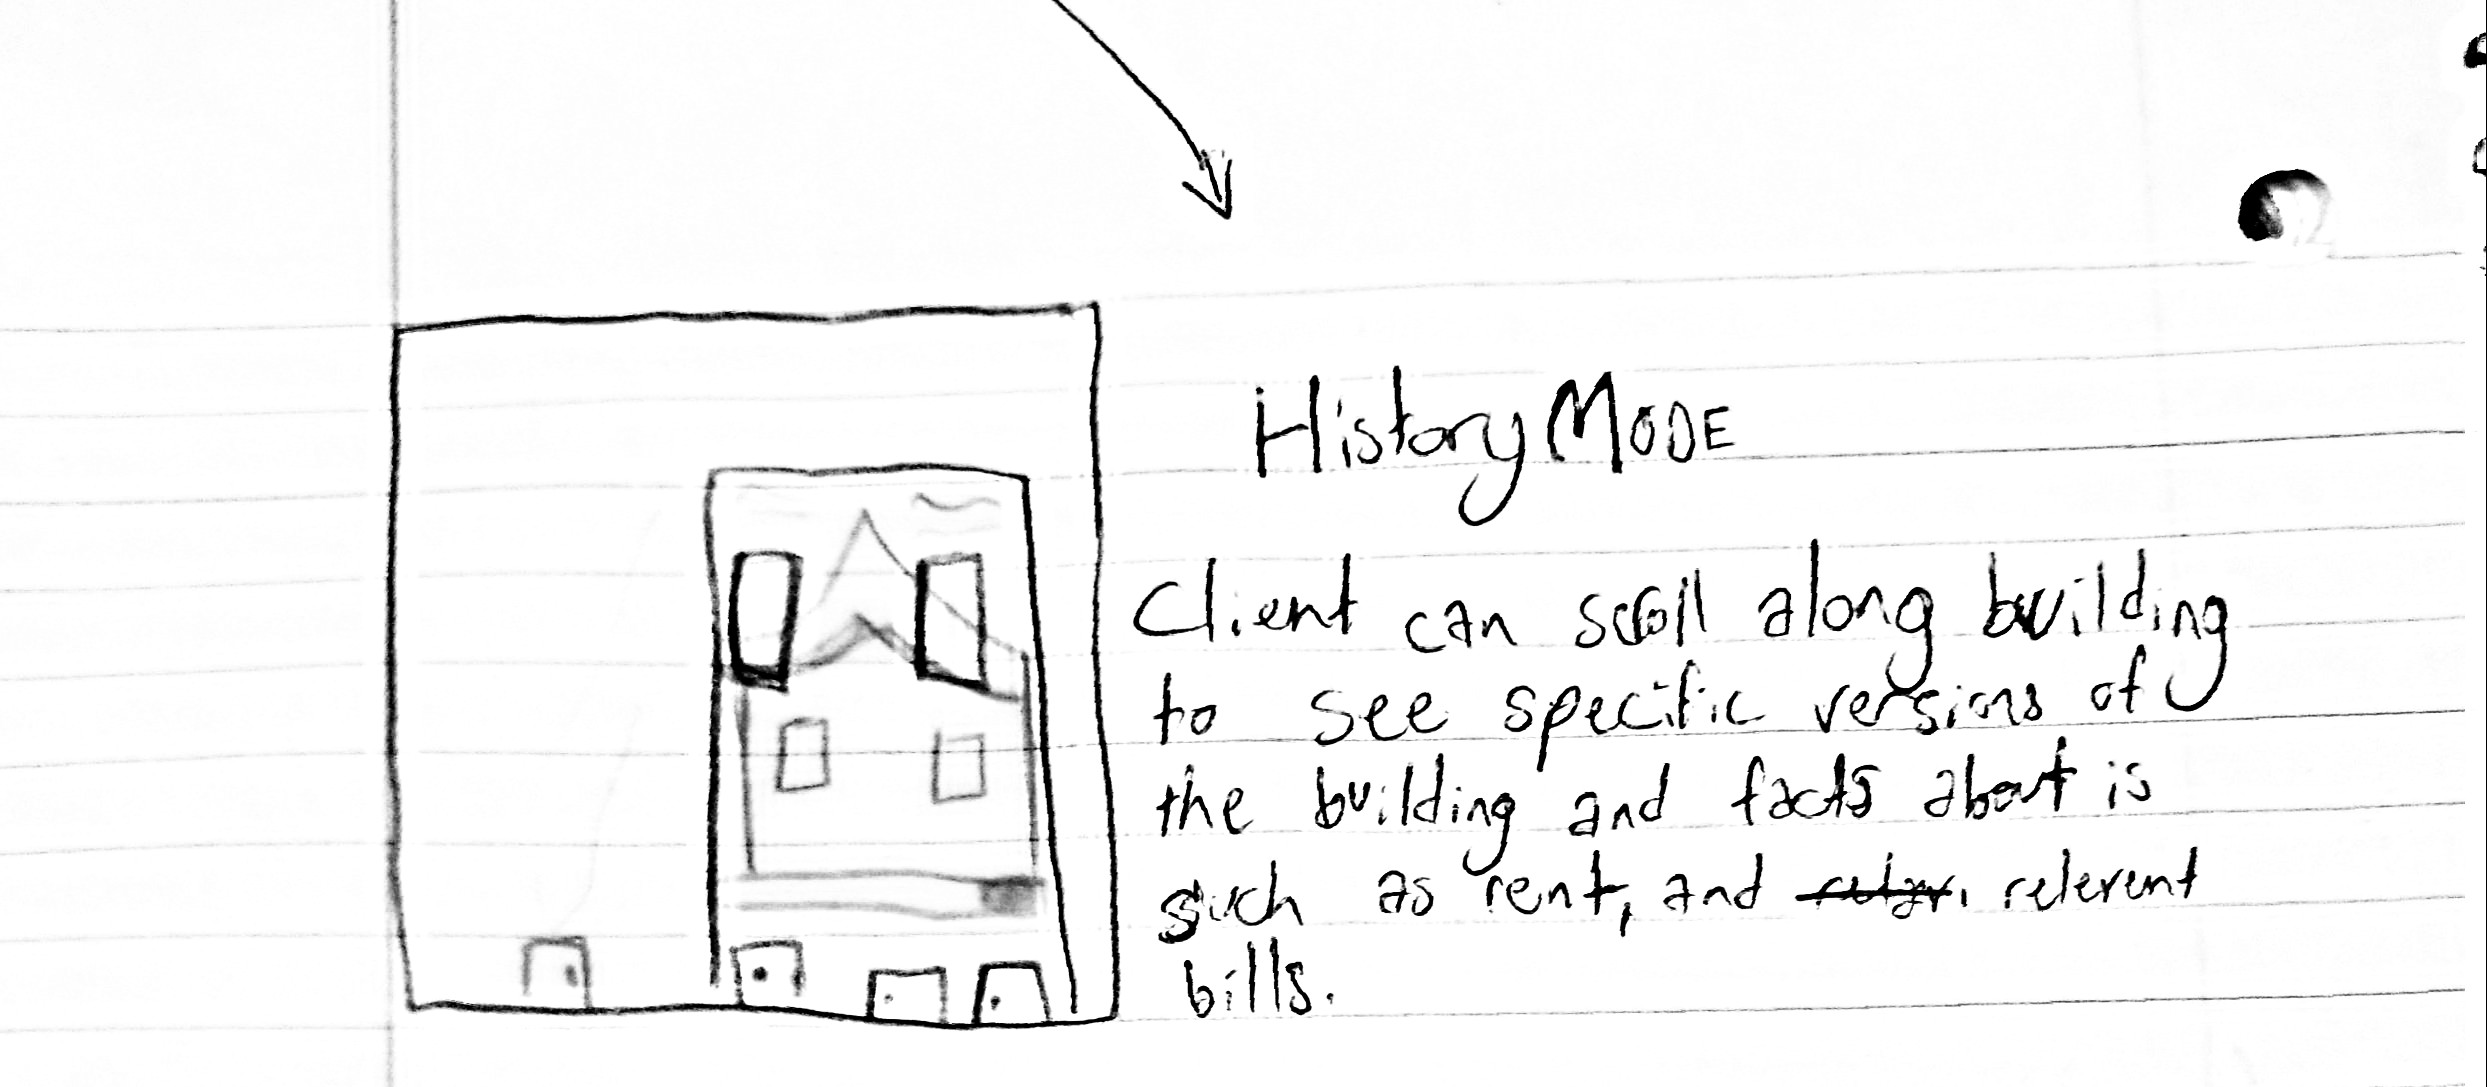 History MODE
Client can scroll along building
to see specific versions of
the building and facts about is
such as rent, and relevent
bills.